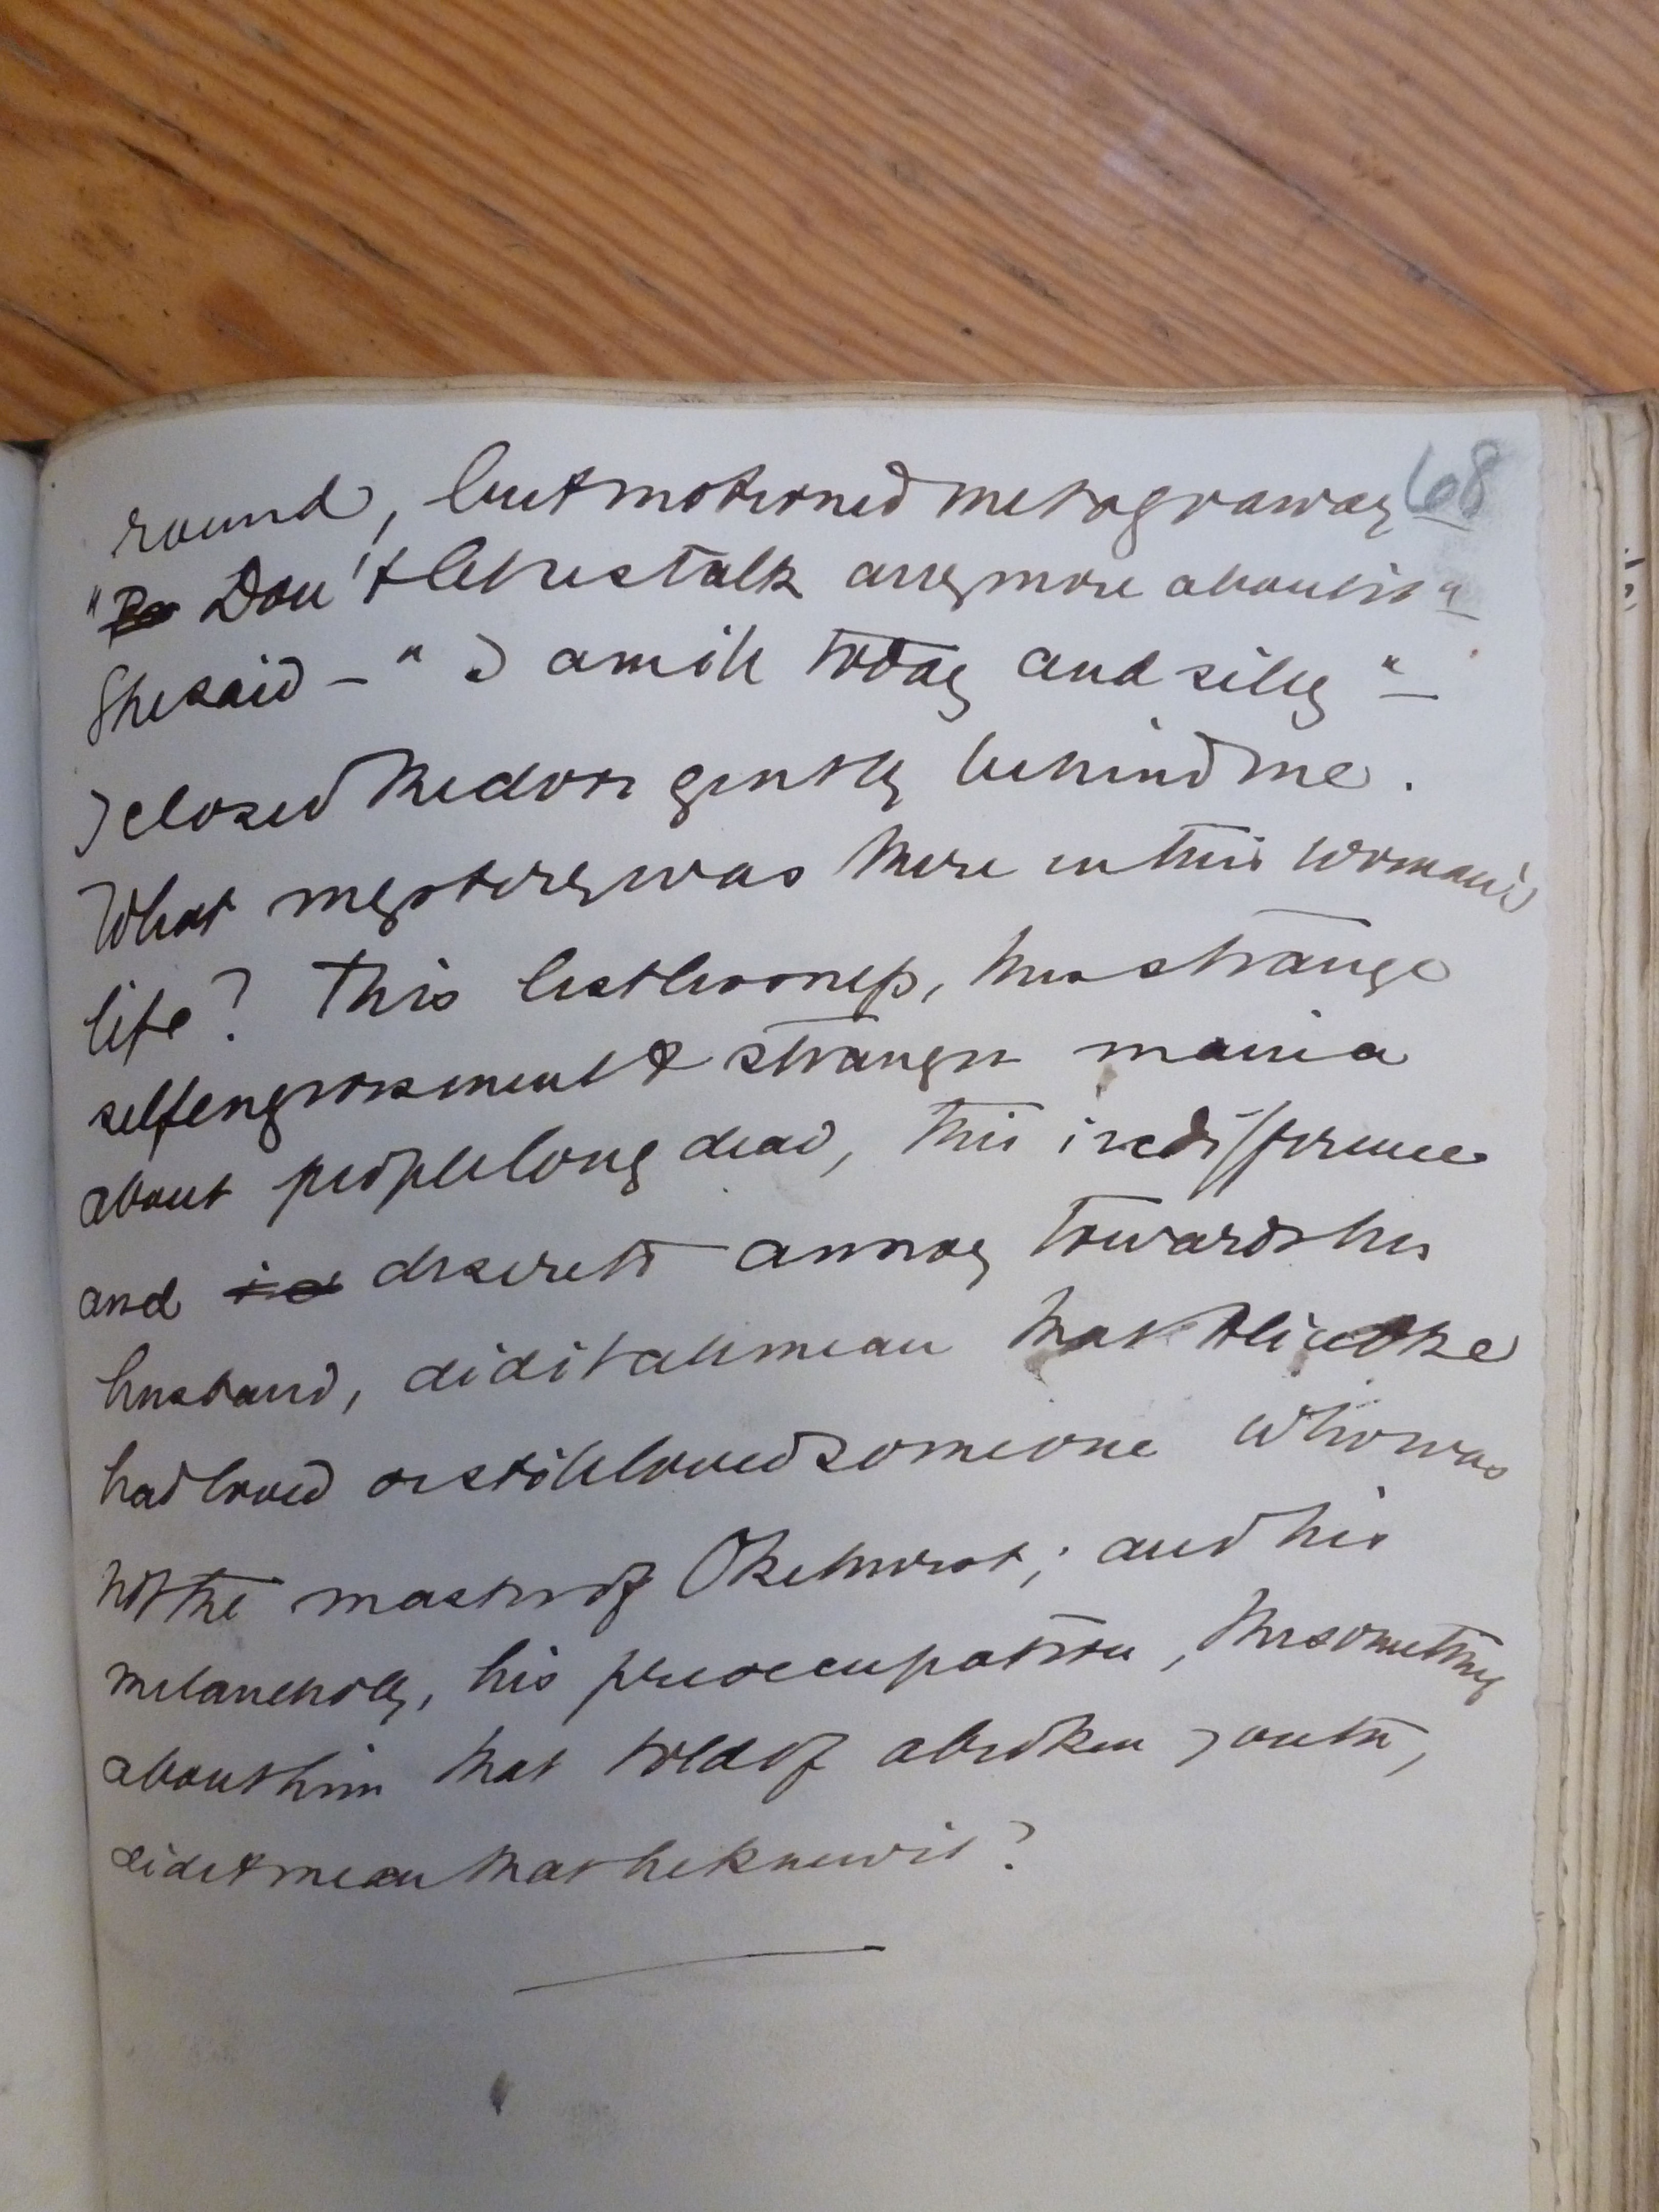 68
round, but motioned me to go away
"Don't let us talk any more about it"
She said – "I am ill today and silly" –
I closed the door gently behind me.
What mystery was there in this woman's
life? This listlessness, this strange
selfengrossment & stranger mania
about people long dead, this indifference
and desire to annoy towards her
husband, did it all mean that Alice Oke
had loved or still loved someone who was
not the master of Okehurst; and his
melancholy, his preoccupation, the something
about him that told of a broken youth,
did it mean that he knew it?